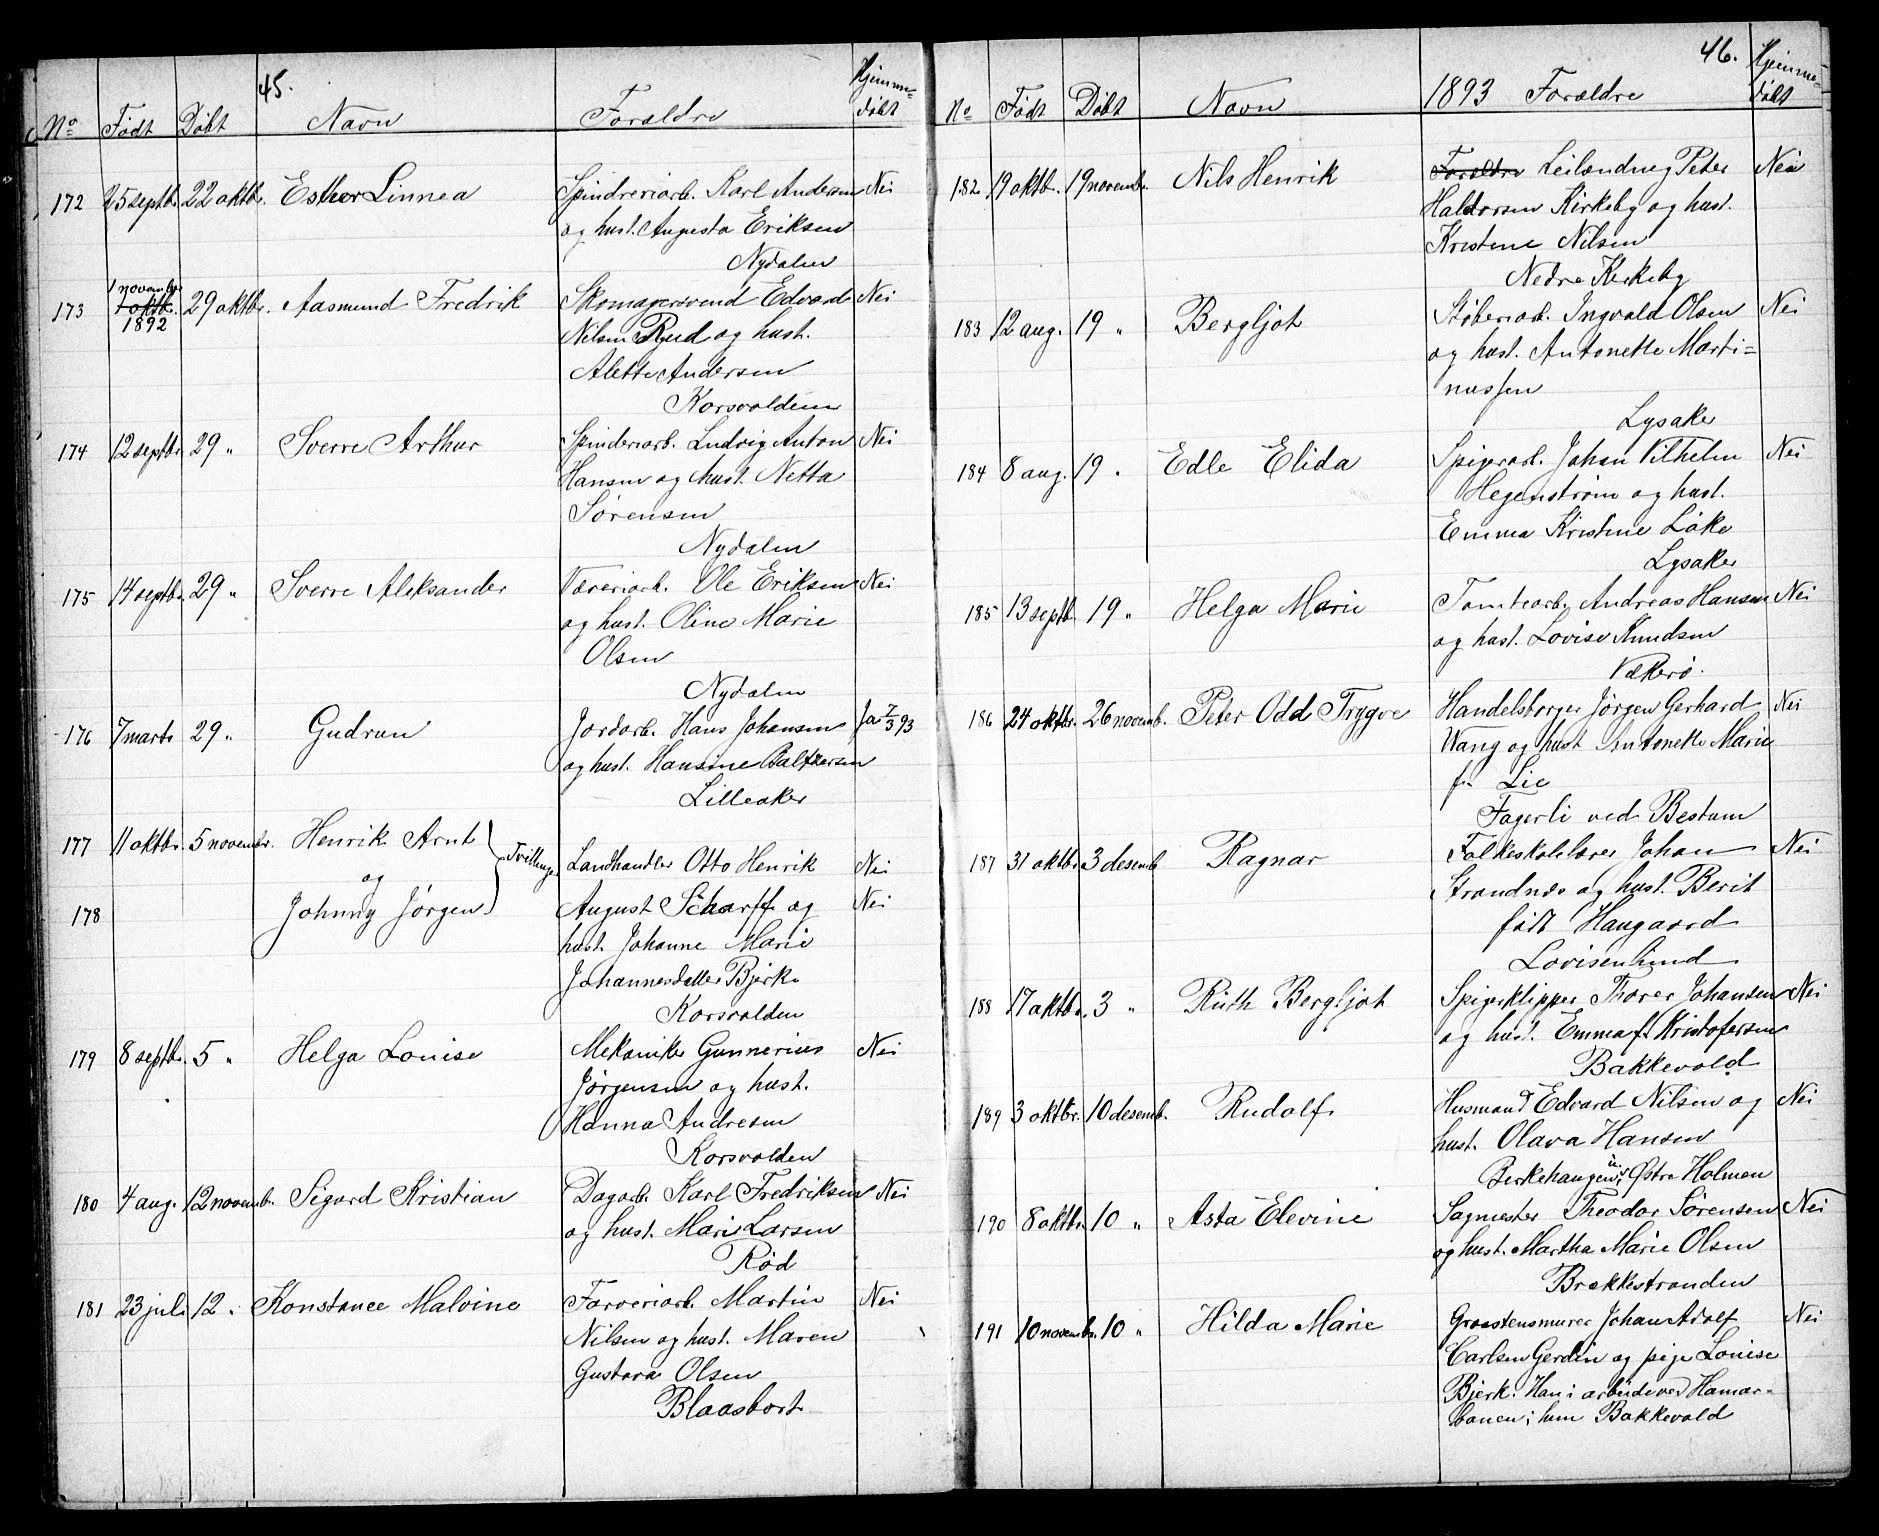 45.
No Født Døbt Navn Forældre Hjemme-
døbt
172 25 septb. 22 oktb. Esther Linnea Spindreriarb. Karl Andersen Nei
og hust. Augusta Eriksen
Nydalen
1 novembr
173 1 oktb. 29 oktb. Aasmund Fredrik Skomagersvend Edvard Nei
1892
Nilsen Ruud og hust.
Alette Andersen
Korsvolden
174 12 septbr. 29 " Sverre Arthur Spinderiarb. Ludvig Anton Nei
Hansen og hust. Netta
Sørensen
Nydalen
175 14 septb. 29 " Sverre Aleksander Væveriarb. Ole Eriksen Nei
og hust. Oline Marie
Olsen
Nydalen
176 7 marts 29 " Gudrun Jordarb. Hans Johansen Ja 7/3 93
og hust. Hansine Baltzersen
Lilleaker
177 11 oktbr. 5 novembr. Henrik Arnt
og Tvillinger Landhandler Otto Henrik Nei
178 Johnny Jørgen August Scharff og Nei
hust. Johanne Marie
Johannesdatter Bjerke
Korsvolden
179 8 septb. 5 " Helga Louise Mekaniker Gunnerius Nei
Jørgensen og hust.
Hanna Andresen
Korsvolden
180 4 aug. 12 novemb. Sigurd Kristian Dagarb. Karl Fredriksen Nei
og hust. Marie Larsen
Rød
181 23 juli 12 " Konstance Malvine Farveriarb. Martin Nei
Nilsen og hust. Maren
Gustava Olsen
Blaasbort
46.
No Født Døbt Navn 1893 Forældre Hjemme-
døbt
182 19 oktb. 19 novemb. Nils Henrik Forældre Leilænding Peter Nei
Haldorsen Kirkeby og hust.
Kristine Nilsen
Nedre Kirkeby
183 12 aug. 19 " Bergljot Støberiarb. Ingvald Olsen Nei
og hust. Antonette Marti=
nussen
Lysaker
184 8 aug. 19 " Edle Elida Spigerarb. Johan Vilhelm Nei
Hegenstrøm og hust.
Emma Kristine Løke
Lysaker
185 13 septb. 19 " Helga Marie Tomtearb. Andreas Hansen Nei
og hust. Lovise Knudsen
Vækerø.
186 24 oktbr. 26 novemb. Peter Odd Trygve Handelsborger Jørgen Gerhard Nei
Wang og hust Antonette Marie
f. Lie
Fagerli ved Bestum
187 31 oktbr. 3 desemb. Ragnar Folkeskolelærer Johan Nei
Strandnæs og hust. Berit
født Haugaard
Lovisenlund
188 17 oktb. 3 " Ruth Bergljot Spigerklipper Thorer Johansen Nei
og hust. Emma f. Kristofersen
Bakkevold
189 3 oktbr. 10 desemb. Rudolf Husmand Edvard Nilsen og Nei
hust. Olava Hansen
Berkehaugen u. Østre Holmen
190 8 oktbr. 10 " Asta Elevine Sagmester Theodor Sørensen Nei
og hust. Martha Marie Olsen
Brækkestranden
191 10 novemb. 10 " Hilda Marie Graastensmurer Johan Adolf Nei
Carlsen Gerdin og pige Louise
Bjerk. Han i arbeide ved Hamar-
banen; hun Bakkevold